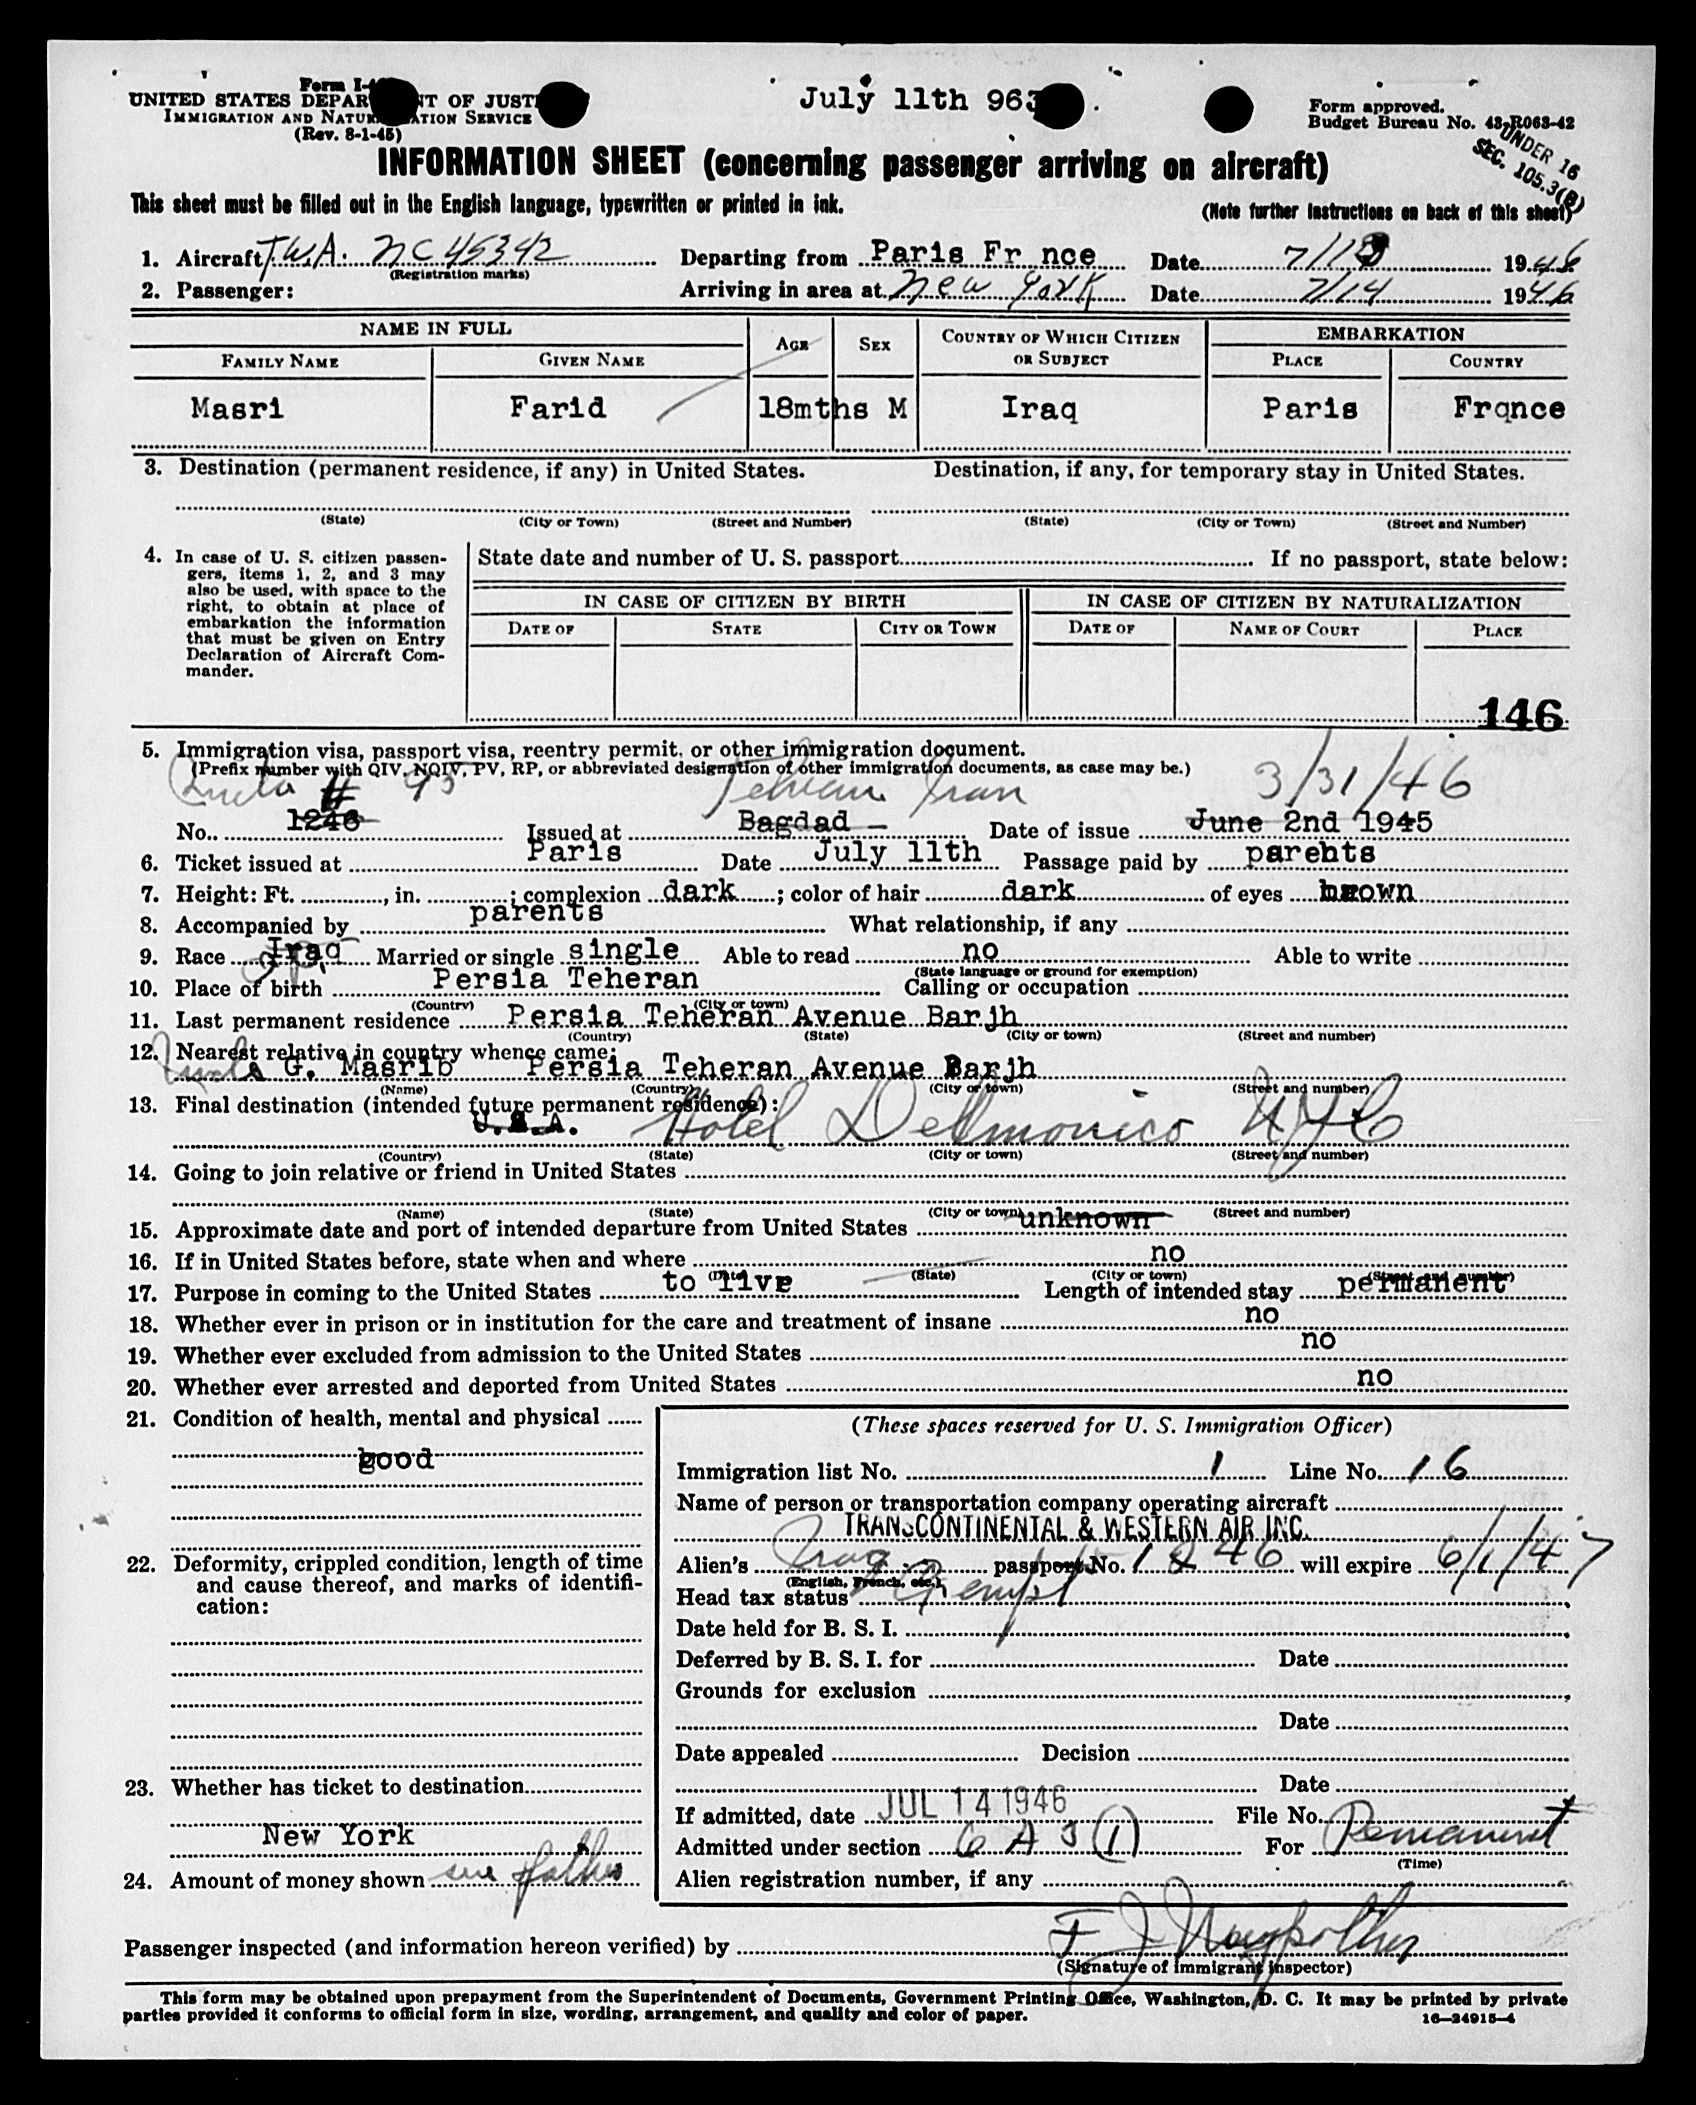 Form I-
July 11th 963
UNITED STATES DEPAR NT OF JUST
IMMIGRATION AND NATUR ATION SERVICE
(Rev. 8-1-45)
Form approved.
Budget Bureau No. 43-R063-42
UNDER 16
SEC. 105.3(B)
INFORMATION SHEET (concerning passenger arriving on aircraft)
This sheet must be filled out in the English language, typewritten or printed in ink.
(Note further instructions on back of this sheet)
1. Aircraft T.W.A. NC 45342 Departing from Paris Fr nce Date 7/13 1946
(Registration marks)
2. Passenger: Arriving in area at New York Date 7/14 1946
NAME IN FULL AGE SEX COUNTRY OF WHICH CITIZEN OR SUBJECT EMBARKATION
FAMILY NAME GIVEN NAME PLACE COUNTRY
Masri Farid 18mths M Iraq Paris Frqnce
3. Destination (permanent residence, if any) in United States. Destination, if any, for temporary stay in United States.
(State) (City or Town) (Street and Number) (State) (City or Town) (Street and Number)
4. In case of U. S. citizen passen-
gers, items 1, 2, and 3 may
also be used, with space to the
right, to obtain at place of
embarkation the information
that must be given on Entry
Declaration of Aircraft Com-
mander.
State date and number of U. S. passport If no passport, state below:
IN CASE OF CITIZEN BY BIRTH IN CASE OF CITIZEN BY NATURALIZATION
DATE OF STATE CITY OR TOWN DATE OF NAME OF COURT PLACE
146
5. Immigration visa, passport visa, reentry permit, or other immigration document.
(Prefix number with QIV, NQIV, PV, RP, or abbreviated designation of other immigration documents, as case may be.)
Quota # 93 Tehran Iran 3/31/46
No. 1246 Issued at Bagdad Date of issue June 2nd 1945
6. Ticket issued at Paris Date July 11th Passage paid by parents
7. Height: Ft. , in. ; complexion dark ; color of hair dark of eyes brown
8. Accompanied by parents What relationship, if any
9. Race Iraq Married or single single Able to read no Able to write
(State language or ground for exemption)
10. Place of birth Persia Teheran Calling or occupation
(Country) (City or town)
11. Last permanent residence Persia Teheran Avenue Barjh
(Country) (State) (City or town) (Street and number)
12. Nearest relative in country whence came:
Uncle G. Masrib Persia Teheran Avenue Barjh
(Name) (Country) (City or town) (Street and number)
13. Final destination (intended future permanent residence):
U.S.A. Hotel Delmonico NYC
(Country) (State) (City or town) (Street and number)
14. Going to join relative or friend in United States
(Name) (State) (City or town) (Street and number)
15. Approximate date and port of intended departure from United States unknown
16. If in United States before, state when and where no
(Date) (State) (City or town) (Street and number)
17. Purpose in coming to the United States to live Length of intended stay permanent
18. Whether ever in prison or in institution for the care and treatment of insane no
19. Whether ever excluded from admission to the United States no
20. Whether ever arrested and deported from United States no
21. Condition of health, mental and physical
good
22. Deformity, crippled condition, length of time
and cause thereof, and marks of identifi-
cation:
23. Whether has ticket to destination
New York
24. Amount of money shown see father
(These spaces reserved for U. S. Immigration Officer)
Immigration list No. 1 Line No. 16
Name of person or transportation company operating aircraft
TRANSCONTINENTAL & WESTERN AIR INC.
Alien's Iraq passport No. 1246 will expire 6/1/47
(English, French, etc.)
Head tax status Exempt
Date held for B. S. I.
Deferred by B. S. I. for Date
Grounds for exclusion
Date
Date appealed Decision
Date
If admitted, date JUL 14 1946 File No.
Admitted under section 6 A 3 (1) For Permanent
(Time)
Alien registration number, if any
Passenger inspected (and information hereon verified) by F J
(Signature of immigrant inspector)
This form may be obtained upon prepayment from the Superintendent of Documents, Government Printing Office, Washington, D. C. It may be printed by private
parties provided it conforms to official form in size, wording, arrangement, and quality and color of paper.
16—24915-4